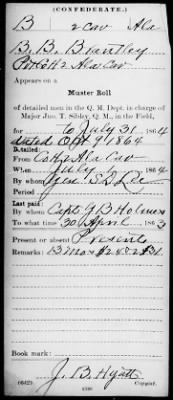 (CONFEDERATE.)
B 2 Cav Ala
B. B. Brantley
Pvt Co H 2 Ala Cav
Appears on a
Muster Roll
of detailed men in the Q. M. Dept. in charge of
Major Jno. T. Sibley, Q. M., in the Field,
for to July 31, 1864
dated Oct 9 1864
Detailed:
From Co H 2 Ala Cav
When July, 1864
By whom Gen. S D Lee
Period
Last paid:
By whom Capt. G B Holmes
To what time 30 April, 1863
Present or absent Present
Remarks:
Book mark:
J. B. Hyatt
Copyist.